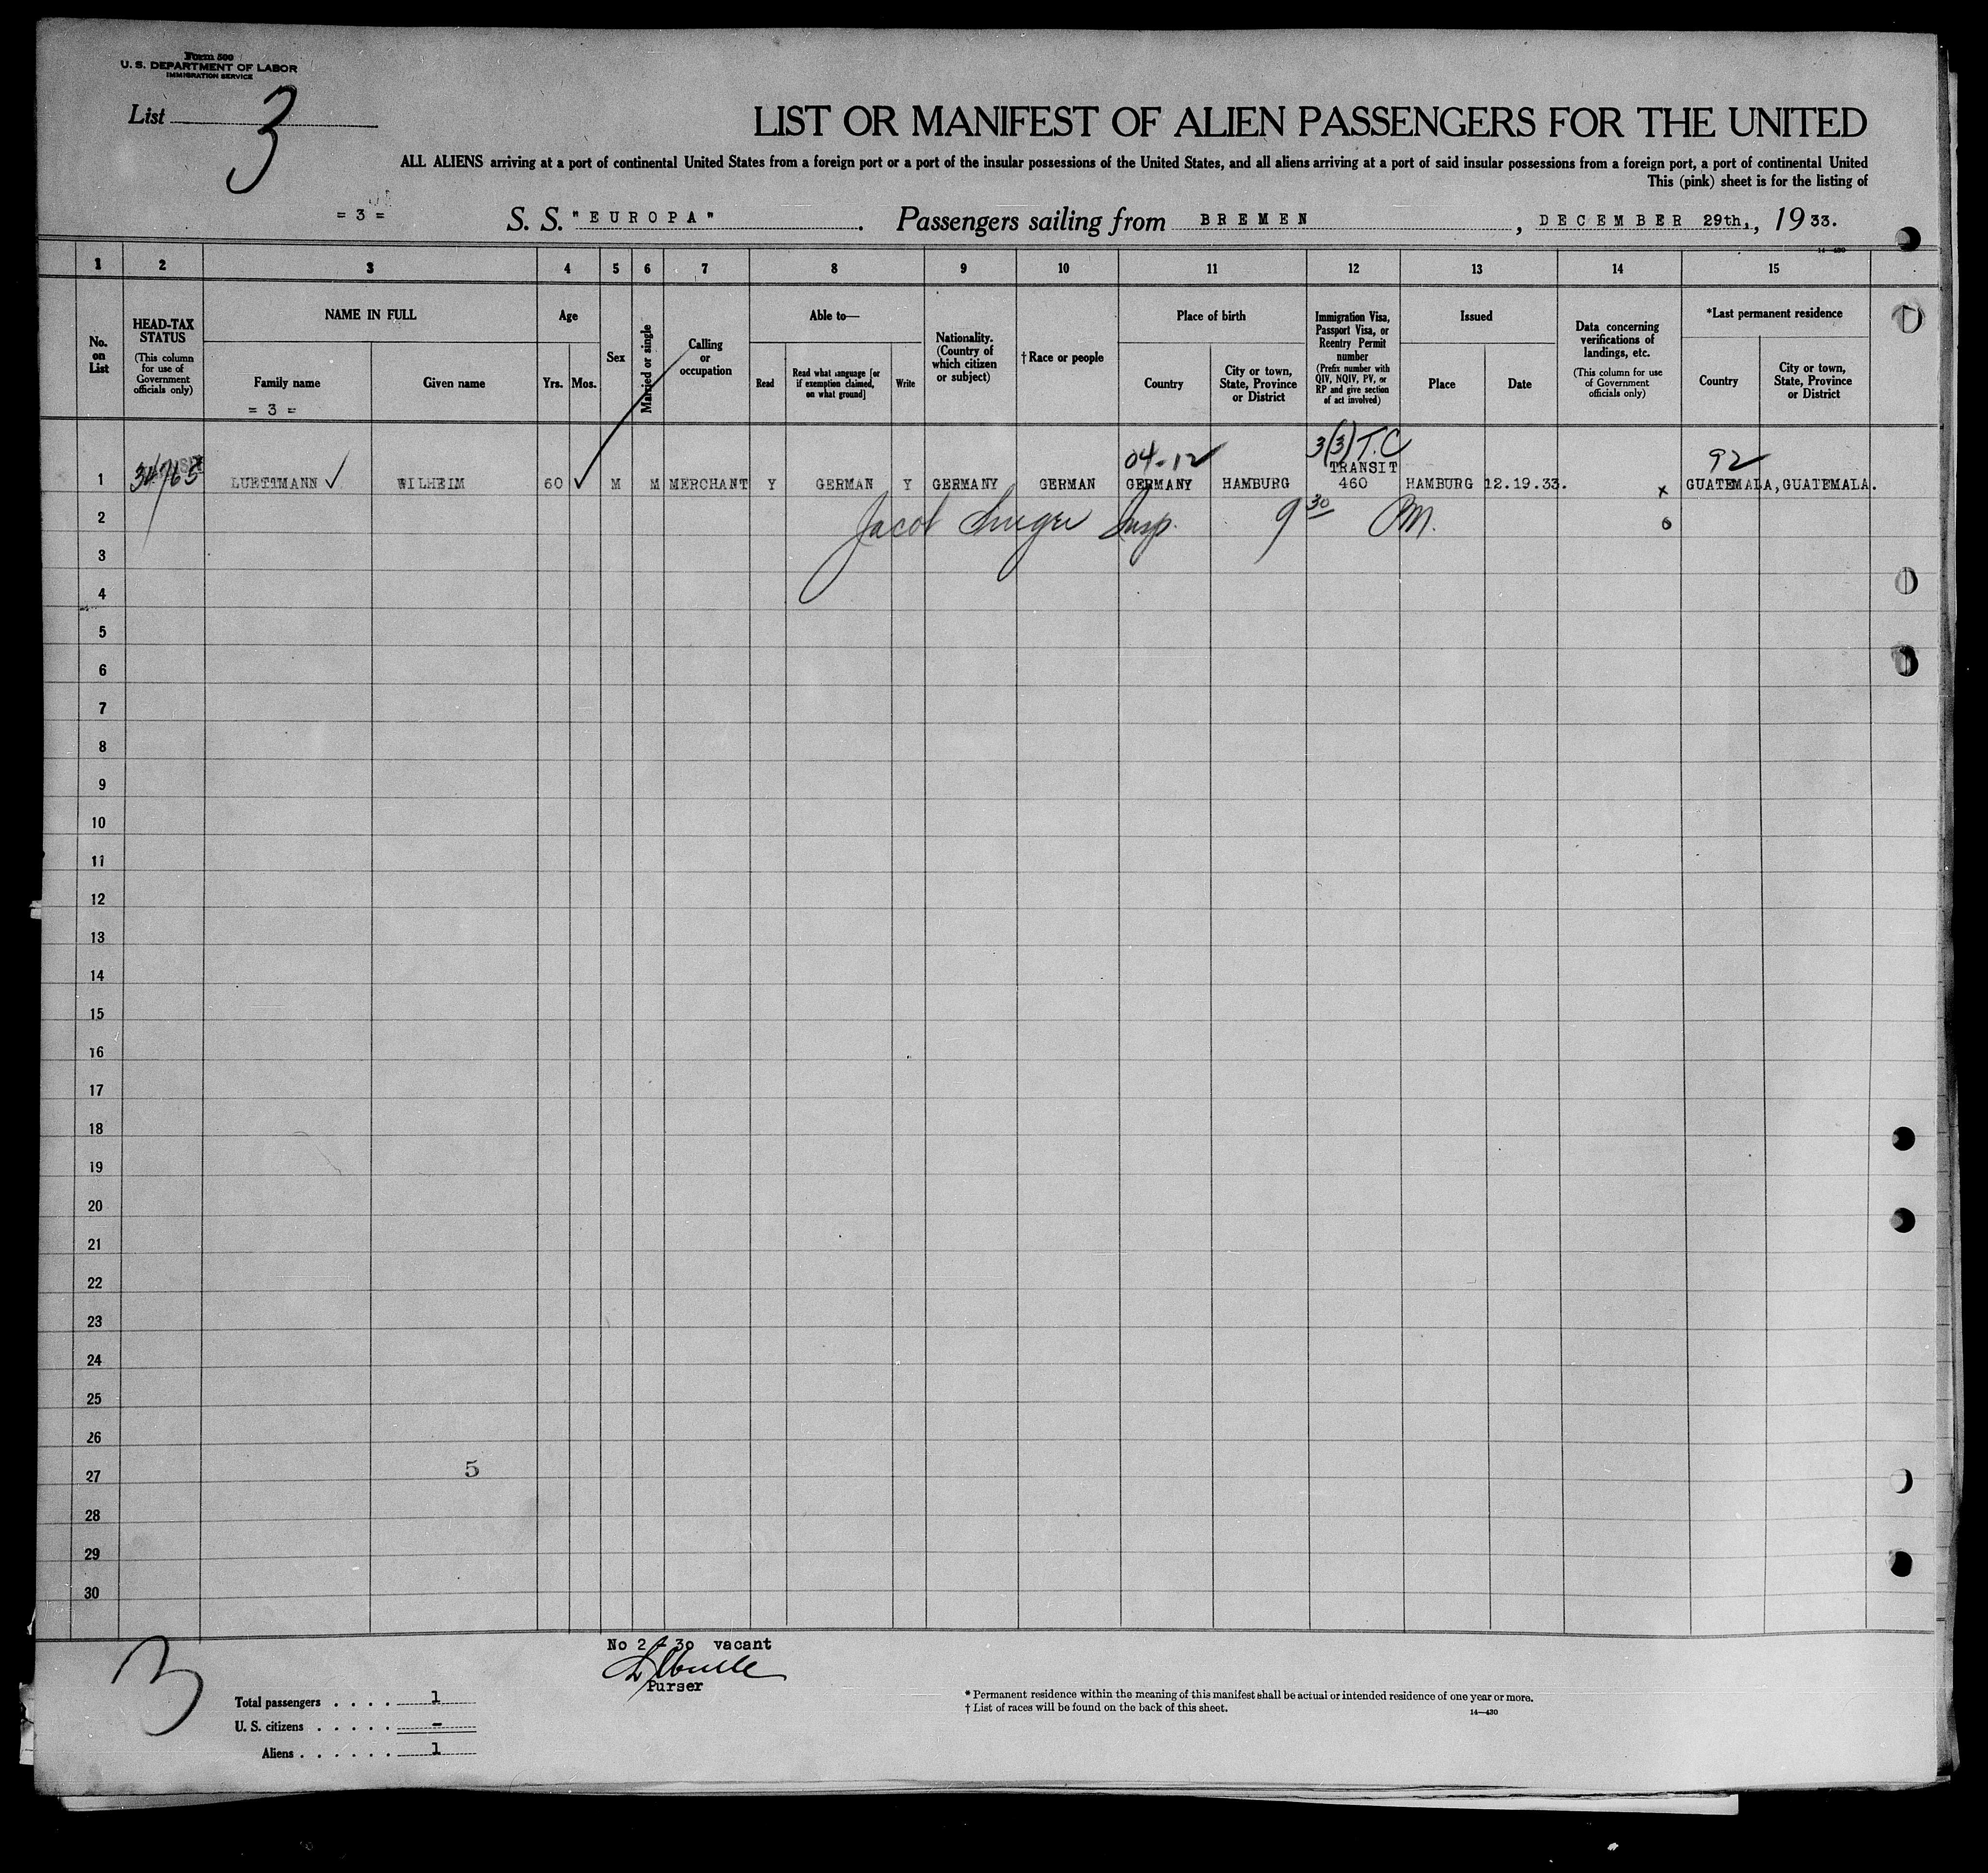 Form 500
U. S. DEPARTMENT OF LABOR
IMMIGRATION SERVICE
List 3
LIST OR MANIFEST OF ALIEN PASSENGERS FOR THE UNITED
ALL ALIENS arriving at a port of continental United States from a foreign port or a port of the insular possessions of the United States, and all aliens arriving at a port of said insular possessions from a foreign port, a port of continental United
This (pink) sheet is for the listing of
= 3 = S. S. "EUROPA". Passengers sailing from BREMEN, DECEMBER 29th,, 1933.
14-430
1 2 3 4 5 6 7 8 9 10 11 12 13 14 15
No. on List
HEAD-TAX STATUS
(This column for use of Government officials only)
NAME IN FULL
Family name
Given name
= 3 =
Age
Yrs. Mos.
Sex
Married or single
Calling or occupation
Able to—
Read
Read what language [or if exemption claimed, on what ground]
Write
Nationality. (Country of which citizen or subject)
† Race or people
Place of birth
Country
City or town, State, Province or District
Immigration Visa, Passport Visa, or Reentry Permit number
(Prefix number with QIV, NQIV, PV, or RP and give section of act involved)
Issued
Place
Date
Data concerning verifications of landings, etc.
(This column for use of Government officials only)
*Last permanent residence
Country
City or town, State, Province or District
04-12 3(3) T.C 92
TRANSIT
1 LUETTMANN WILHEIM 60 M M MERCHANT Y GERMAN Y GERMANY GERMAN GERMANY HAMBURG 460 HAMBURG 12.19.33. x GUATEMALA, GUATEMALA.
2 Jacob Insp. 9 30 PM. 6
3
4
5
6
7
8
9
10
11
12
13
14
15
16
17
18
19
20
21
22
23
24
25
26
27 5
28
29
30
3
No 2 - 30 vacant
Purser
Total passengers . . . . 1
U. S. citizens . . . . . -
Aliens . . . . . . 1
* Permanent residence within the meaning of this manifest shall be actual or intended residence of one year or more.
† List of races will be found on the back of this sheet.
14-430